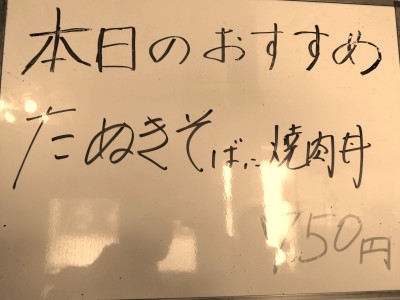 本日のおすすめ
たぬきそばに焼肉丼
750円